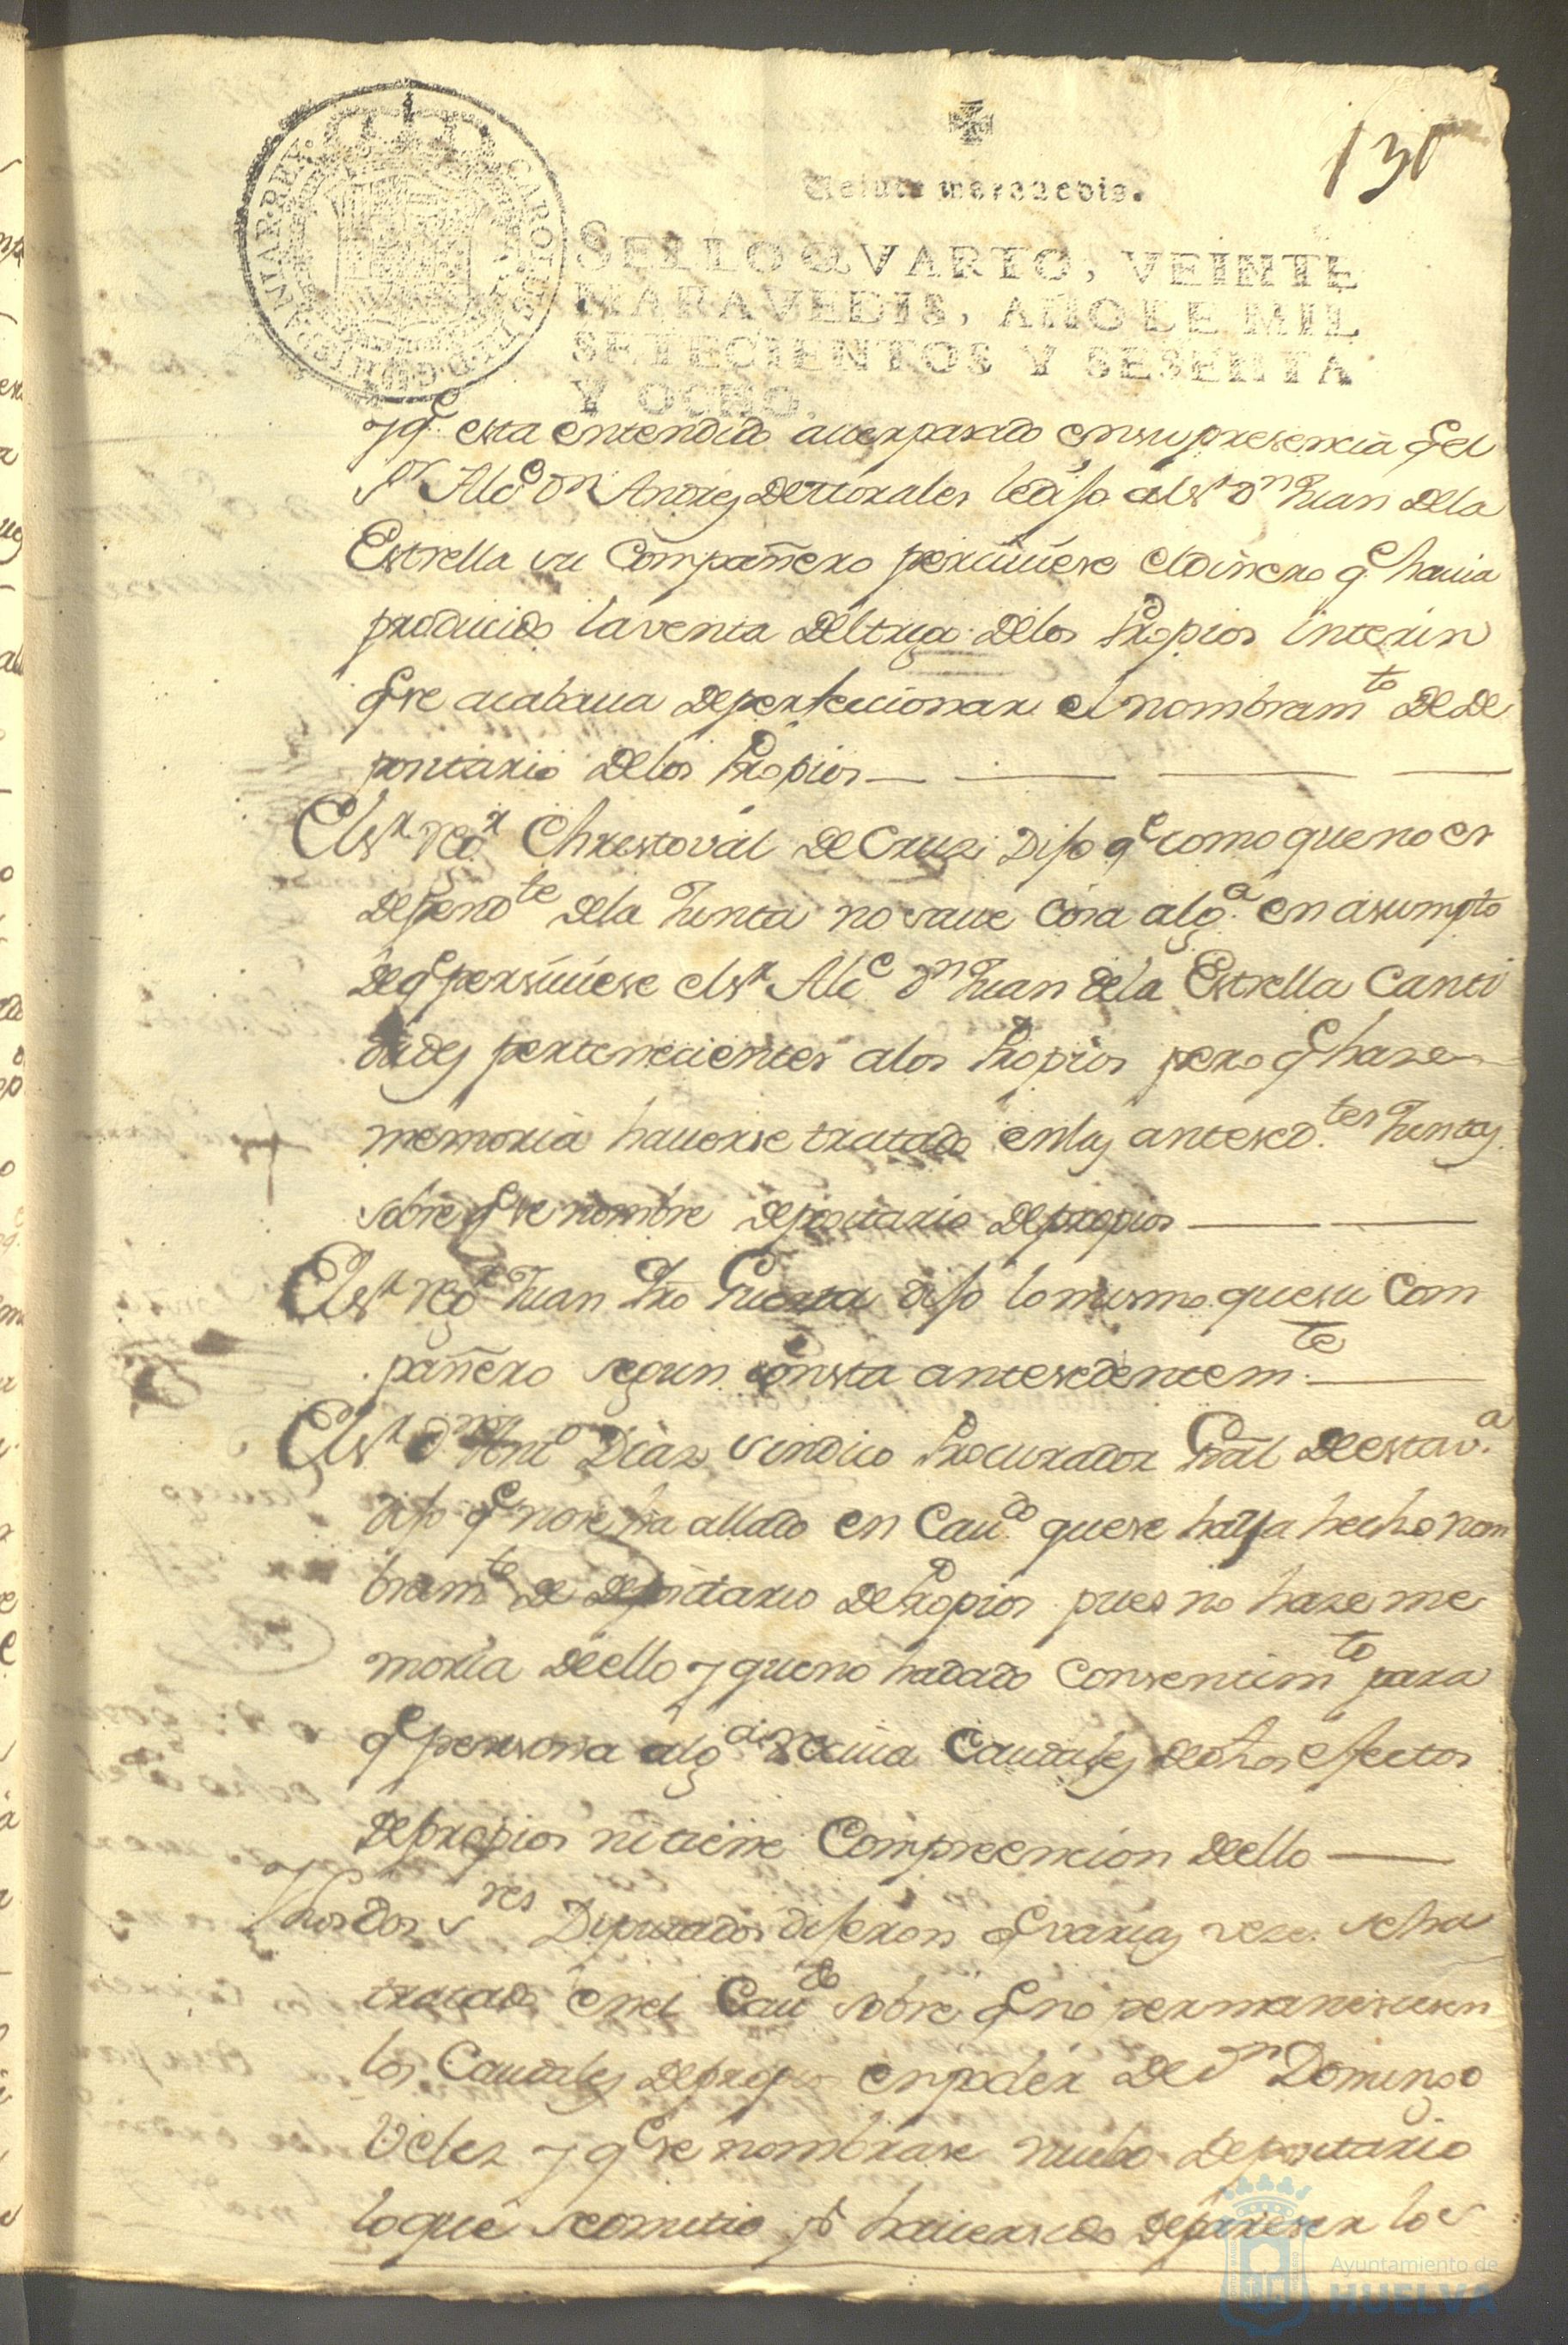 130
CAROLUS III D G HISPANIAR REY
Veinte maravedis.
SELLO QVARTO, VEINTE
MARAVEDIS, AÑO DE MIL
SETECIENTOS Y SESENTA
Y OCHO.
y q.e esta entendido auer pasado en su presencia q.e el
S.r Alc.e D.n Andres de Morales le dijo al s.r D.n Juan de la
Estrella su Compañero perciuiese el dinero q.e hauia
producido la venta del trigo de los Propios interin
q.e se acabaua de perfeccionar el nombram.to de de
positario de los Propios
El s.r reg.r Christoval de Cruz Dijo q.e como que no es
depend.te de la Junta no saue cosa alg.a en asumpto
de q.e persiuiese el s.r Alc.e D.n Juan de la Estrella Canti
dades pertenecientes a los Propios pero q.e hase
memoria hauerse tratado en las antesed.tes Juntas
sobre q.e se nombre depositario de propios
El s.r reg.r Juan Guerra dijo lo mismo que su Com
pañero segun consta antesedentem.te
El s.r D.n Ant.o Diaz Sindico Procurador Gral de esta v.a
dijo q.e no se ha allado en Cau.do que se haya hecho nom
bram.to de depositario de Propios pues no hase me
moria de ello y que no ha dado Consentim.to para
q.e persona alg.a reciua Caudales de dhos efectos
de propios ni tiene Compreencion de ello
Y los dos s.res Diputados dijeron q.e varias veses se ha
tratado en el Cau.do sobre q.e no permanesiesen
los Caudales de propios en poder de D.n Domingo
Velez y q.e se nombrase nuebo depositario
lo que se omitio p.r hauerse de los
Ayuntamiento de
HUELVA